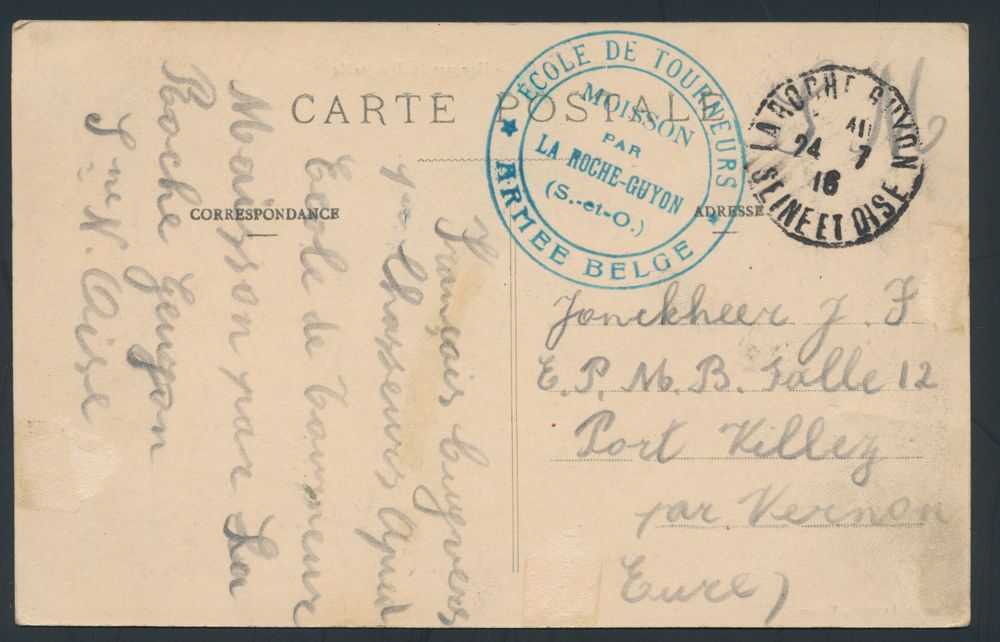 CARTE POSTALE
ÉCOLE DE TOURNEURS
MOISSON
PAR
LA ROCHE-GUYON
(S.-et-O.)
ARMÉE BELGE
LA ROCHE GUYON
24 7
16
SEINE ET OISE
CORRESPONDANCE
ADRESSE
François Cuypers
Chasseurs apied
Ecole de tourneur
Moisson par La
Roche Geuyon
Oise
Jonckheer J. F
E. P. M. B. Salle 12
Port Killez
par Vernon
Eure)